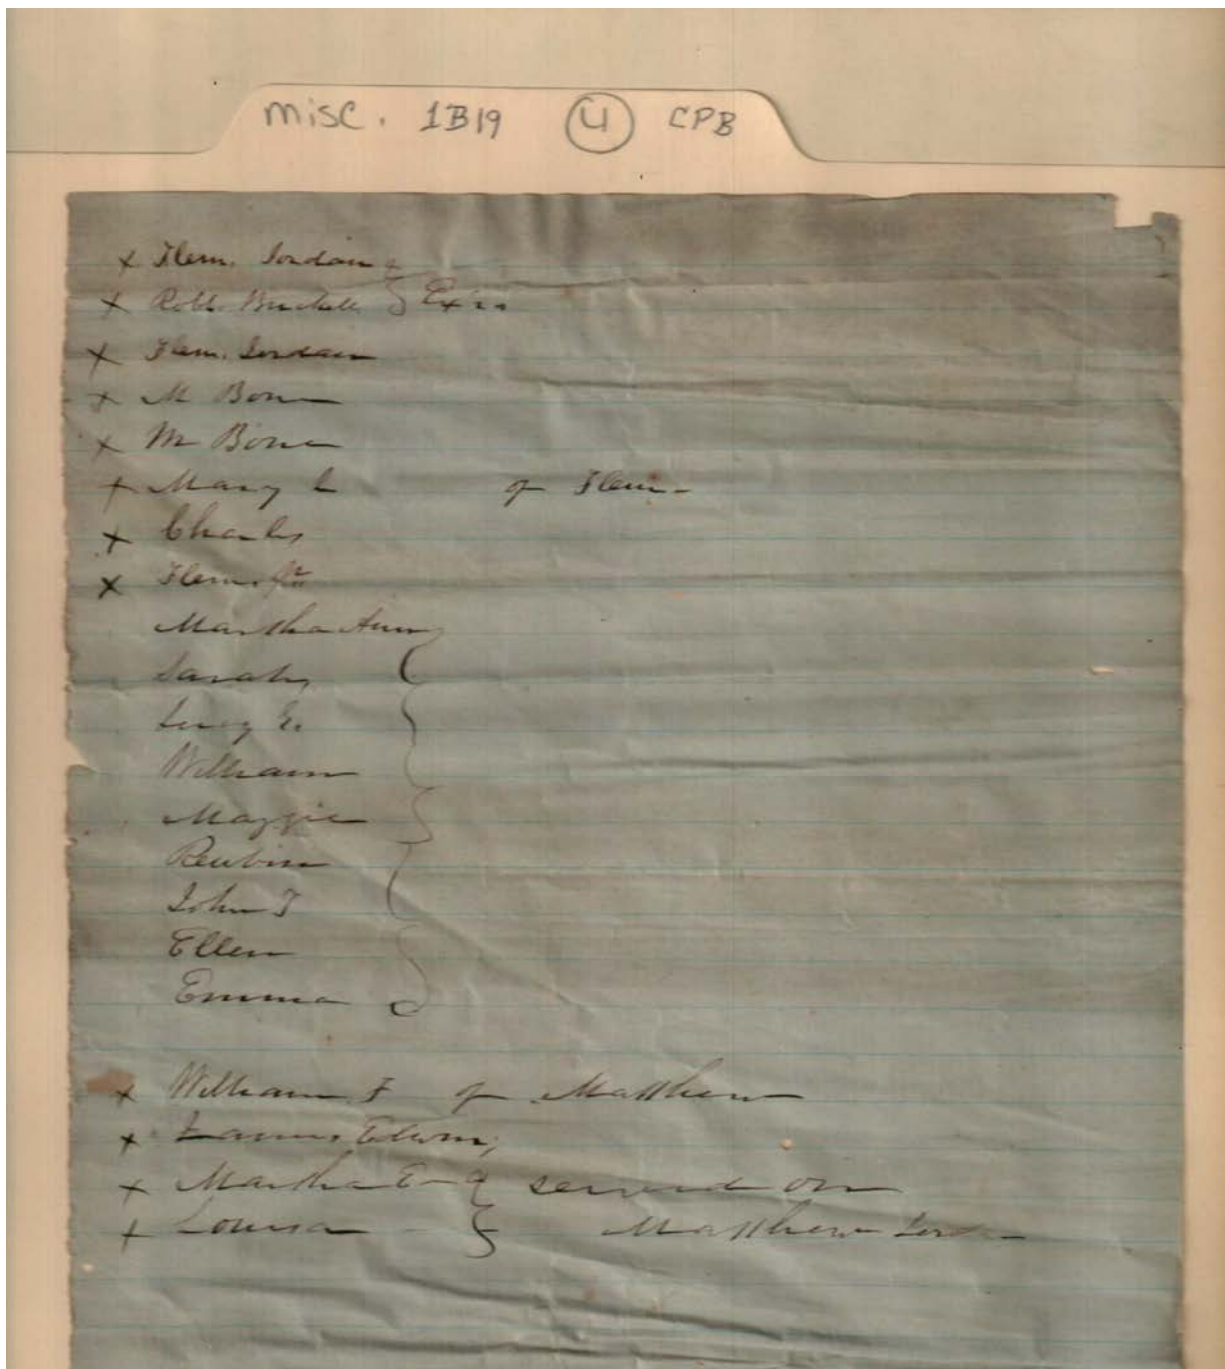 misc. 1B19 4 CPB
x Flem. Jordan
x Robt. Exrs
x Flem. Jordan
x M Bone
x M Bone
x Mary C of Flem.
x Charles
x Flem. Jr.
Martha Ann
Sarah
Lucy E.
William
Maggie
Reubin
John T
Ellen
Emma
x William F of Matthew
x
x Martha E served on
x Louisa Matthew Jordan